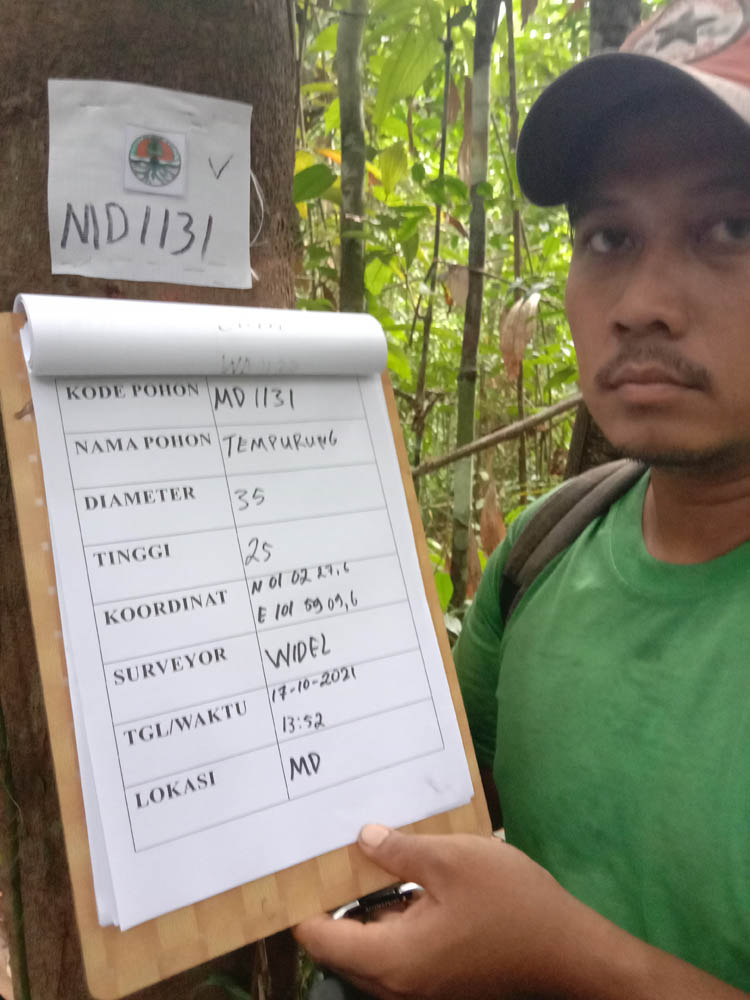 MD1131
KODE POHON MD1131
NAMA POHON TEMPURUNG
DIAMETER 35
TINGGI 25
KOORDINAT N 01 02 27,6
E 101 59 09,6
SURVEYOR WIDEL
TGL/WAKTU 17-10-2021
13:52
LOKASI MD